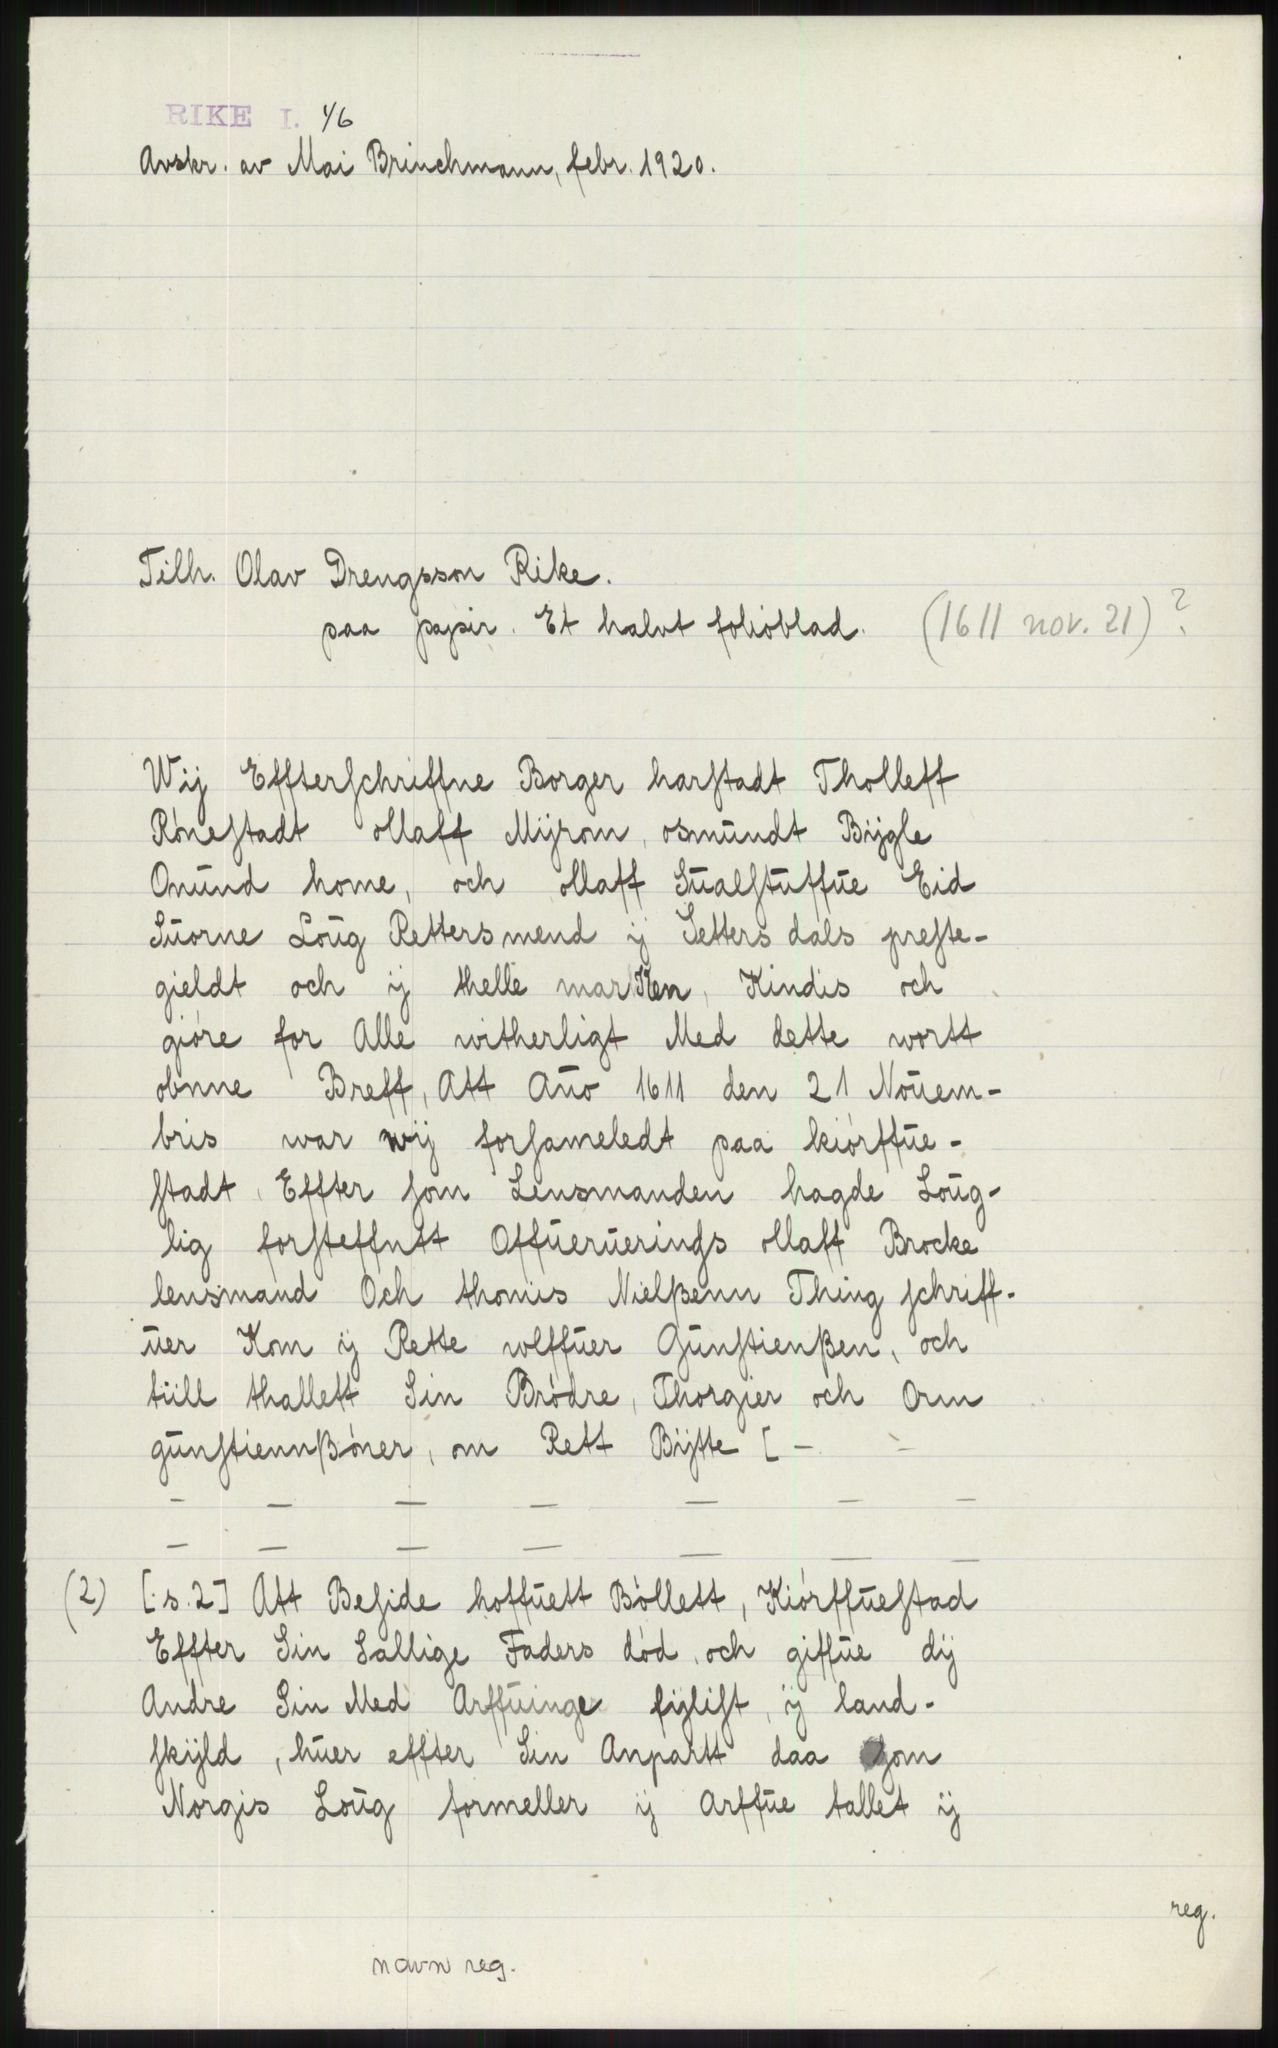 RIKE I. 1/6
Avskr. av Mai Brinchmann, febr. 1920.
Tilh. Olav Drengsson Rike.
paa papir. Et halvt folioblad. (1611 nov. 21)?
Wij Effterſchriffne Borger harſtadt Tholleff
Röneſtadt ollaff Mijrom, osmundt Bijgle
Onund home, och ollaff Sualſtuffue Eid
Suorne Loug Rettersmend ij Setters dals preſte-
gieldt och ij thelle marken, Kindis och
giöre for Alle witherligt Med dette wortt
obnne Breff, Att Año 1611 den 21 Nouem-
bris war wij forſameledt paa kiörffue-
ſtadt, Effter ſom Lensmanden hagde Loug-
lig forſteffntt Offueruerindſs ollaff Brocke
lensmand Och thomis Nielßenn Thing ſchriff-
uer Kom ij Rette wlffuer Gunſtienßen, och
tiill thallett Sin Brödre, Thorgier och Orm
gunſtiennßöner, om Rett Bijtte [ - -
- - - - - - -
- - - - - - -
(2) [s. 2] Att Beſide hoffuett Böllett, Kiörffueſtad
Effter Sin Sallige Faders död, och giffue dij
Andre Sin Med Arffuinge fijliſt, ij land-
ſkijld, huer effter Sin Anpartt daa ſom
Norgis Loug formeller ij Arffue tallet ij
reg.
navn reg.